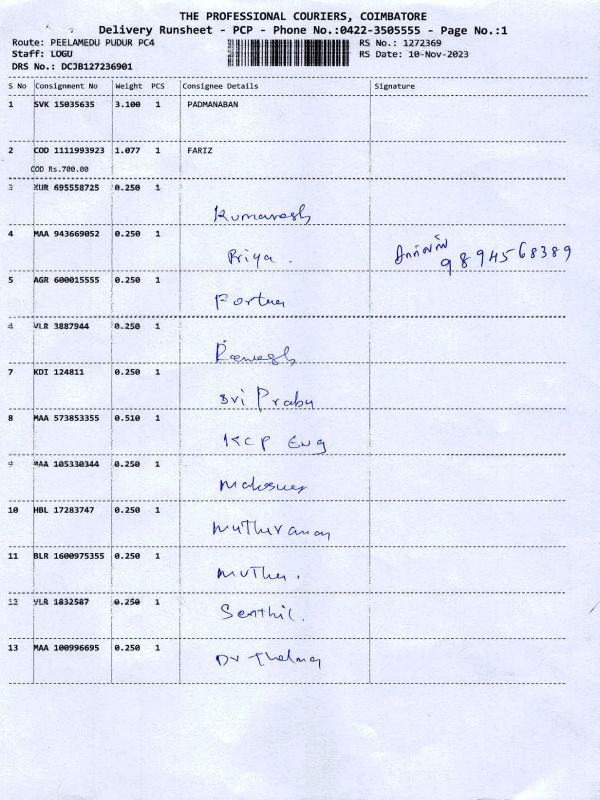 THE PROFESSIONAL COURIERS, COIMBATORE
Delivery Runsheet - PCP - Phone No.:0422-3505555 - Page No.:1
Route: PEELAMEDU PUDUR PC4 RS No.: 1272369
Staff: LOGU RS Date: 10-Nov-2023
DRS No.: DCJB127236901
S No Consignment No Weight PCS Consignee Details Signature
1 SVK 15035635 3.100 1 PADMANABAN
2 COD 1111993923 1.077 1 FARIZ
COD Rs.700.00
3 KUR 695558725 0.250 1
Kumaresh
4 MAA 943669052 0.250 1
Priya . 9894568389
5 AGR 600015555 0.250 1
6 VLR 3887944 0.250 1
Ramesh
7 KDI 124811 0.250 1
Sri Prabu
8 MAA 573853355 0.510 1
KCP Eng
9 MAA 105330344 0.250 1
10 HBL 17283747 0.250 1
11 BLR 1600975355 0.250 1
Muthu .
12 VLR 1832587 0.250 1
Senthil.
13 MAA 100996695 0.250 1
Dr